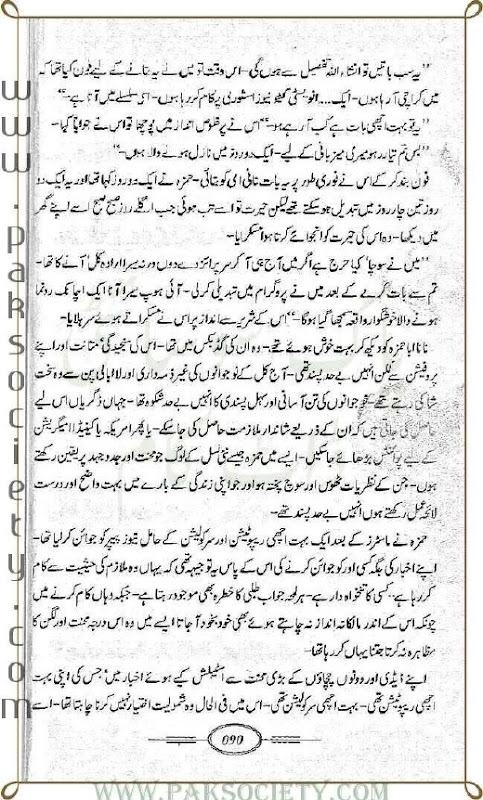 "یہ سب باتیں تو انشاء اللہ تفصیل سے ہوں گی- اس وقت تو میں نے یہ بتانے کے لیے فون کیا تھا کہ
میں کراچی آ رہا ہوں- ایک... انویسٹی گیٹو نیوز اسٹوری پر کام کر رہا ہوں- اسی سلسلے میں آنا ہے-"
"یہ تو بہت اچھی بات ہے کب آ رہے ہو-" اس نے پرخلوص انداز میں پوچھا تو اس نے جواباً کہا-
"بس تم تیار رہو میری میزبانی کے لیے- ایک دو روز میں نازل ہونے والا ہوں-"
فون بند کر کے اس نے فوری طور پر یہ بات نانی امی کو بتائی- حمزہ نے ایک دو روز کہا تھا اور یہ ایک دو
روز تین چار روز میں تبدیل ہو سکتے تھے لیکن حیرت تو اسے تب ہوئی جب اگلے روز صبح صبح اسے اپنے گھر
میں دیکھا- وہ اس کی حیرت کو انجوائے کرتا ہوا مسکرایا-
"میں نے سوچا' کیا حرج ہے اگر میں آج ہی آ کر سرپرائز دے دوں ورنہ میرا ارادہ کل آنے کا تھا-
تم سے بات کرنے کے بعد میں نے پروگرام میں تبدیلی کر لی- آئی ہوپ میرا آنا ایک اچانک رونما
ہونے والا خوشگوار واقعہ سمجھا گیا ہو گا-" اس کے شریر سے انداز پر اس نے مسکراتے ہوئے سر ہلایا-
نانا ابا حمزہ کو دیکھ کر بہت خوش ہوئے تھے- وہ ان کی گڈ بکس میں تھا- اس کی سنجیدگی' متانت اور اپنے
پروفیشن سے لگن انہیں بے حد پسند تھی- آج کل کے نوجوانوں کی غیر ذمہ داری اور لاابالی پن سے وہ سخت
شاکی رہتے تھے- نوجوانوں کی تن آسانی اور سہل پسندی کا انہیں بے حد شکوہ تھا- جہاں ڈگریاں اس لیے
حاصل کی جاتی ہیں کہ ان کے ذریعے شاندار ملازمت حاصل کی جا سکے- یا پھر امریکہ- یا کینیڈا امیگریشن
کے لیے پوائنٹس بڑھائے جا سکیں- ایسے میں حمزہ جیسے نئی نسل کے لوگ جو محنت اور جدوجہد پر یقین رکھتے
ہوں- جن کے نظریات ٹھوس اور سوچ پختہ ہو اور جو اپنی زندگی کے بارے میں بہت واضح اور درست
لائحہ عمل رکھتے ہوں انہیں بے حد پسند تھے-
حمزہ نے ماسٹرز کے بعد ایک بہت اچھی ریپوٹیشن اور سرکولیشن کے حامل نیوز پیپر کو جوائن کر لیا تھا-
اپنے اخبار کی جگہ کسی اور کو جوائن کرنے کی اس کے پاس یہ توجیہہ تھی کہ یہاں وہ ملازم کی حیثیت سے کام
کر رہا ہے- کسی کا تنخواہ دار ہے- ہر لمحہ جواب طلبی کا خطرہ بھی موجود رہتا ہے- جبکہ وہاں کام کرنے میں
چونکہ اس کے اندر مالکانہ انداز نہ چاہتے ہوئے بھی خود بخود آ جاتا ایسے میں وہ اس درجہ محنت اور لگن کا
مظاہرہ نہ کرتا جتنا یہاں کر رہا تھا-
اپنے ڈیڈی اور دونوں چچاؤں کے بڑی محنت سے اسٹیبلش کیے ہوئے اخبار میں' جس کی اپنی بہت
اچھی ریپوٹیشن تھی- بہت اچھی سرکولیشن تھی- اس میں فی الحال وہ شمولیت اختیار نہیں کرنا چاہتا تھا- اسے
090
www.paksociety.com
WWW.PAKSOCIETY.COM